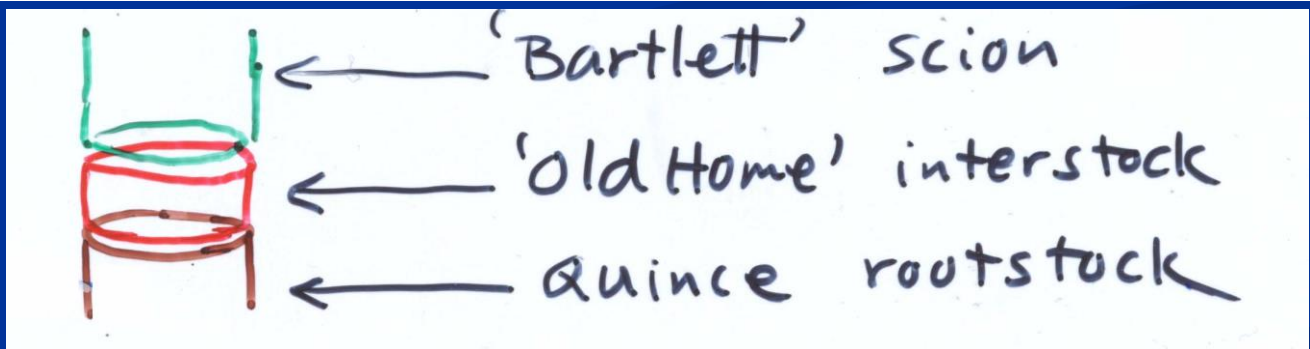 'Bartlett' scion
'Old Home' interstock
Quince rootstock